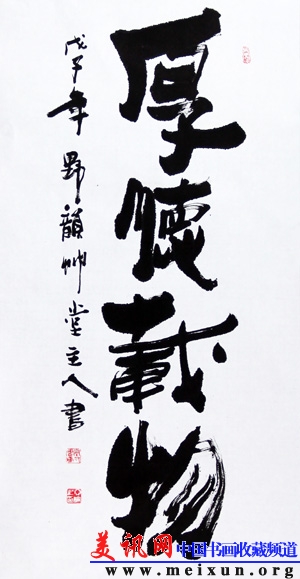 厚德載物
戊子年野韻艸堂主人書
美讯网 中国书画收藏频道
www.meixun.org